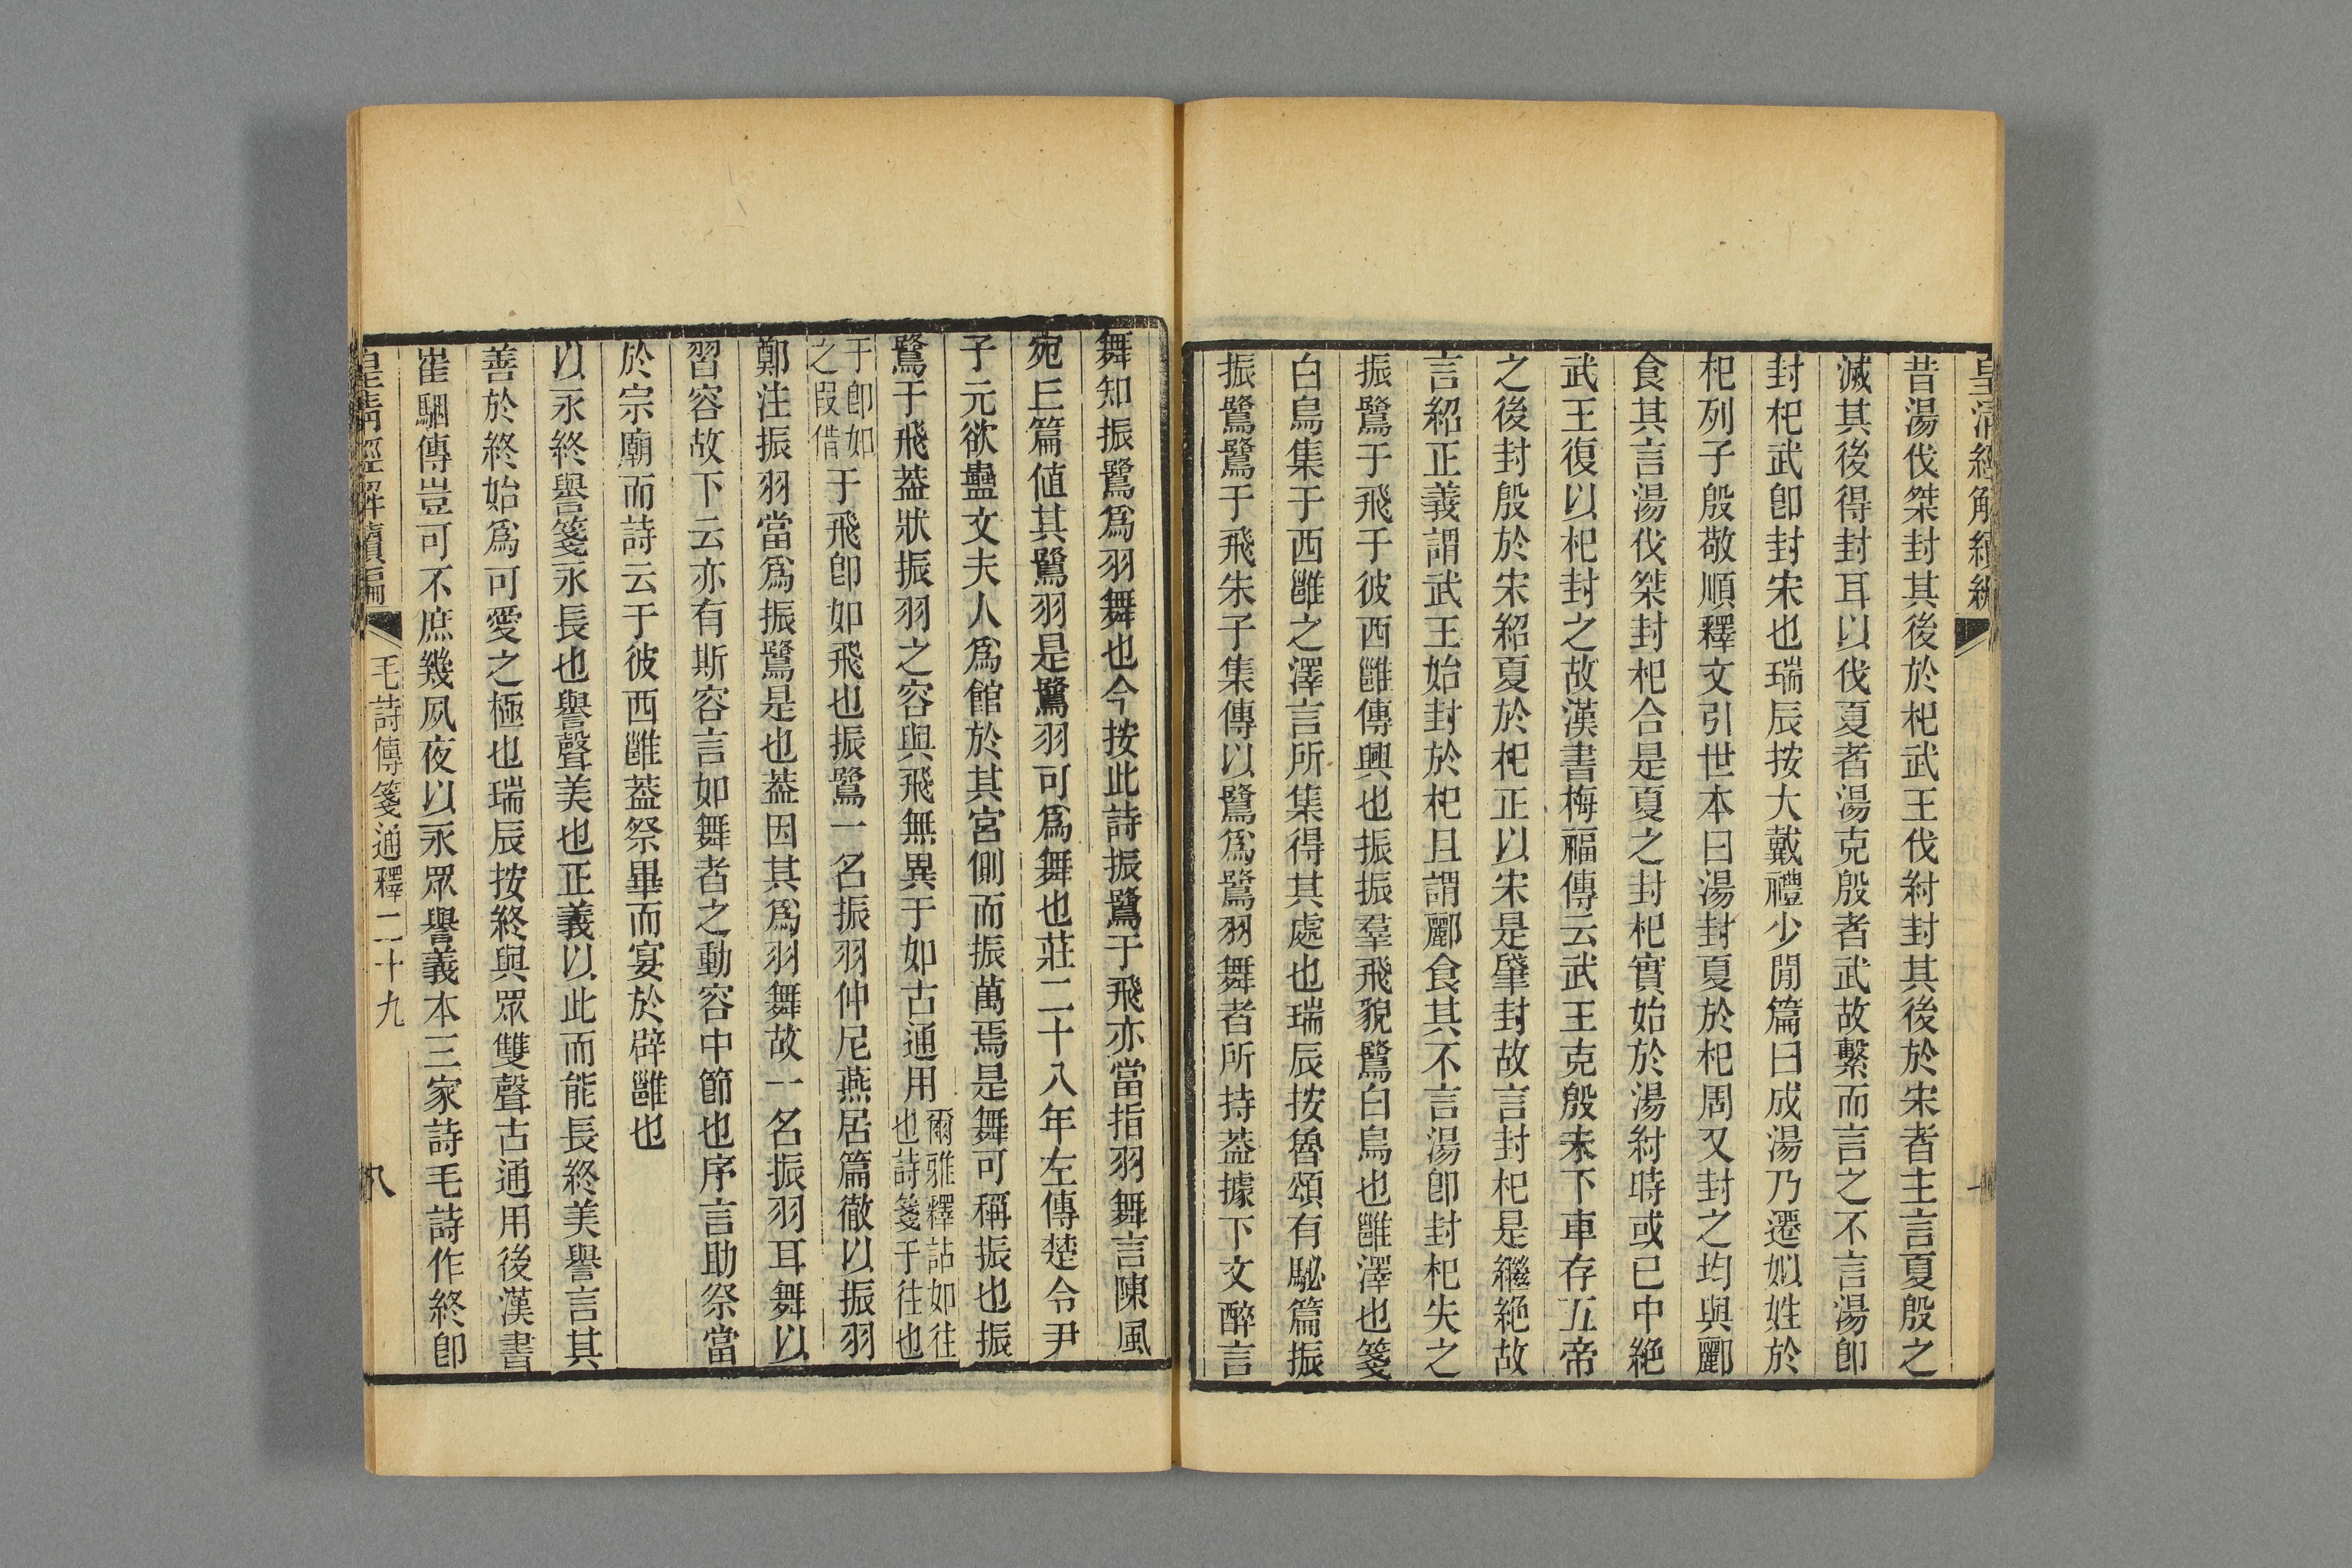 皇清經解續編
昔湯伐桀封其後於杞武王伐紂封其後於宋者主言夏殷之
滅其後得封耳以伐夏者湯克殷者武故繫而言之不言湯卽
封杞武卽封宋也瑞辰按大戴禮少閒篇曰成湯乃遷姒姓於
杞列子殷敬順釋文引世本曰湯封夏於杞周又封之均與酈
食其言湯伐桀封杞合是夏之封杞實始於湯紂時或已中絶
武王復以杞封之故漢書梅福傳云武王克殷未下車存五帝
之後封殷於宋紹夏於杞正以宋是肇封故言封杞是繼絶故
言紹正義謂武王始封於杞且謂酈食其不言湯卽封杞失之
振鷺于飛于彼西雝傳興也振振羣飛貌鷺白鳥也雝澤也箋
白鳥集于西雝之澤言所集得其處也瑞辰按魯頌有駜篇振
振鷺鷺于飛朱子集傳以鷺爲鷺羽舞者所持葢據下文醉言
舞知振鷺爲羽舞也今按此詩振鷺于飛亦當指羽舞言陳風
宛丘篇値其鷺羽是鷺羽可爲舞也莊二十八年左傳楚令尹
子元欲蠱文夫人爲館於其宮側而振萬焉是舞可稱振也振
鷺于飛葢狀振羽之容與飛無異于如古通用爾雅釋詁如往也詩箋于往也
于卽如之假借于飛卽如飛也振鷺一名振羽仲尼燕居篇徹以振羽
鄭注振羽當爲振鷺是也葢因其爲羽舞故一名振羽耳舞以
習容故下云亦有斯容言如舞者之動容中節也序言助祭當
於宗廟而詩云于彼西雝葢祭畢而宴於辟雝也
以永終譽箋永長也譽聲美也正義以此而能長終美譽言其
善於終始爲可愛之極也瑞辰按終與眾雙聲古通用後漢書
崔駰傳豈可不庶幾夙夜以永眾譽義本三家詩毛詩作終卽
皇清經解續編
毛詩傳箋通釋二十九
八